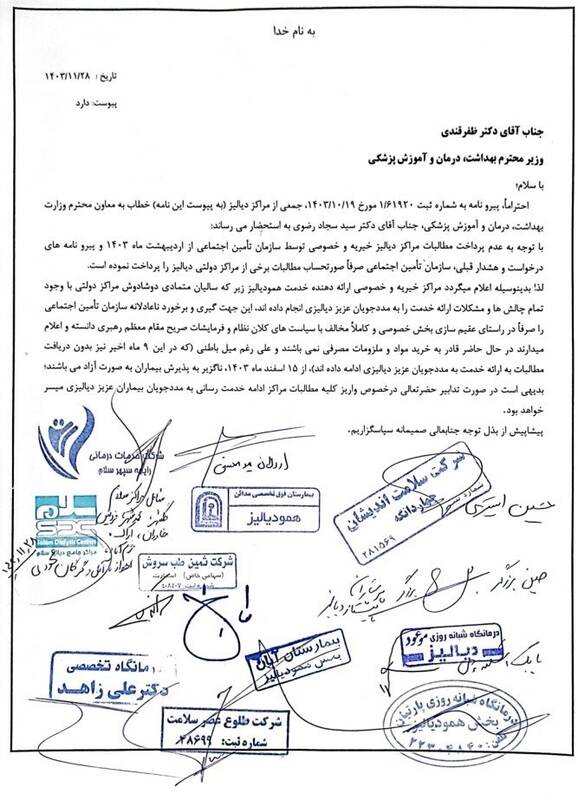 به نام خدا
تاریخ : ۱۴۰۳/۱۱/۲۸
پیوست: دارد
جناب آقای دکتر ظفرقندی
وزیر محترم بهداشت، درمان و آموزش پزشکی
با سلام؛
احتراماً، پیرو نامه به شماره ثبت ۱/۶۱۹۲۰ مورخ ۱۴۰۳/۱۰/۱۹، جمعی از مراکز دیالیز (به پیوست این نامه) خطاب به معاون محترم وزارت
بهداشت، درمان و آموزش پزشکی، جناب آقای دکتر سید سجاد رضوی به استحضار می رساند:
با توجه به عدم پرداخت مطالبات مراکز دیالیز خیریه و خصوصی توسط سازمان تأمین اجتماعی از اردیبهشت ماه ۱۴۰۳ و پیرو نامه های
درخواست و هشدار قبلی، سازمان تأمین اجتماعی صرفاً صورتحساب مطالبات برخی از مراکز دولتی دیالیز را پرداخت نموده است.
لذا؛ بدینوسیله اعلام میگردد مراکز خیریه و خصوصی ارائه دهنده خدمت همودیالیز زیر که سالیان متمادی دوشادوش مراکز دولتی با وجود
تمام چالش ها و مشکلات ارائه خدمت را به مددجویان عزیز دیالیزی انجام داده اند، این جهت گیری و برخورد ناعادلانه سازمان تأمین اجتماعی
را صرفاً در راستای عقیم سازی بخش خصوصی و کاملاً مخالف با سیاست های کلان نظام و فرمایشات صریح مقام معظم رهبری دانسته و اعلام
میدارند در حال حاضر قادر به خرید مواد و ملزومات مصرفی نمی باشند و علی رغم میل باطنی (که در این ۹ ماه اخیر نیز بدون دریافت
مطالبات به ارائه خدمت به مددجویان عزیز دیالیزی ادامه داده اند)، از ۱۵ اسفند ماه ۱۴۰۳، ناگزیر به پذیرش بیماران به صورت آزاد می باشند؛
بدیهی است در صورت تدابیر حضرتعالی درخصوص واریز کلیه مطالبات مراکز ادامه خدمت رسانی به مددجویان بیماران عزیز دیالیزی میسر
خواهد بود.
پیشاپیش از بذل توجه جنابعالی صمیمانه سپاسگزاریم.
شرکت خدمات درمانی
رایحه سپهر سلام
بیمارستان فوق تخصصی مدائن
همودیالیز
شرکت سلامت اندیشان
چهاردانگه
۳۸۱۵۶۹
سلام
Salam Dialysis Centers
مراکز جامع دیالیز سلام
شرکت ثمین طب سروش
(سهامی خاص)
درمانگاه شبانه روزی موعود
دیالیز
بیمارستان آبان
بخش همودیالیز
درمانگاه تخصصی
دکتر علی زاهد
شرکت طلوع عصر سلامت
شماره ثبت: ۲۸۶۹۹
درمانگاه شبانه روزی پارتیان
بخش همودیالیز